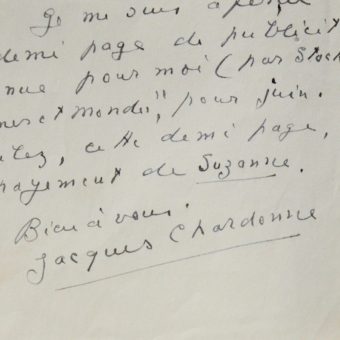 Je me suis aperçu
demi page de publicit
nue pour moi (par Stock
merc et monde", pour juin.
tez, cette demi page,
payement de Suzanne.
Bien à vous.
Jacques Chardonne